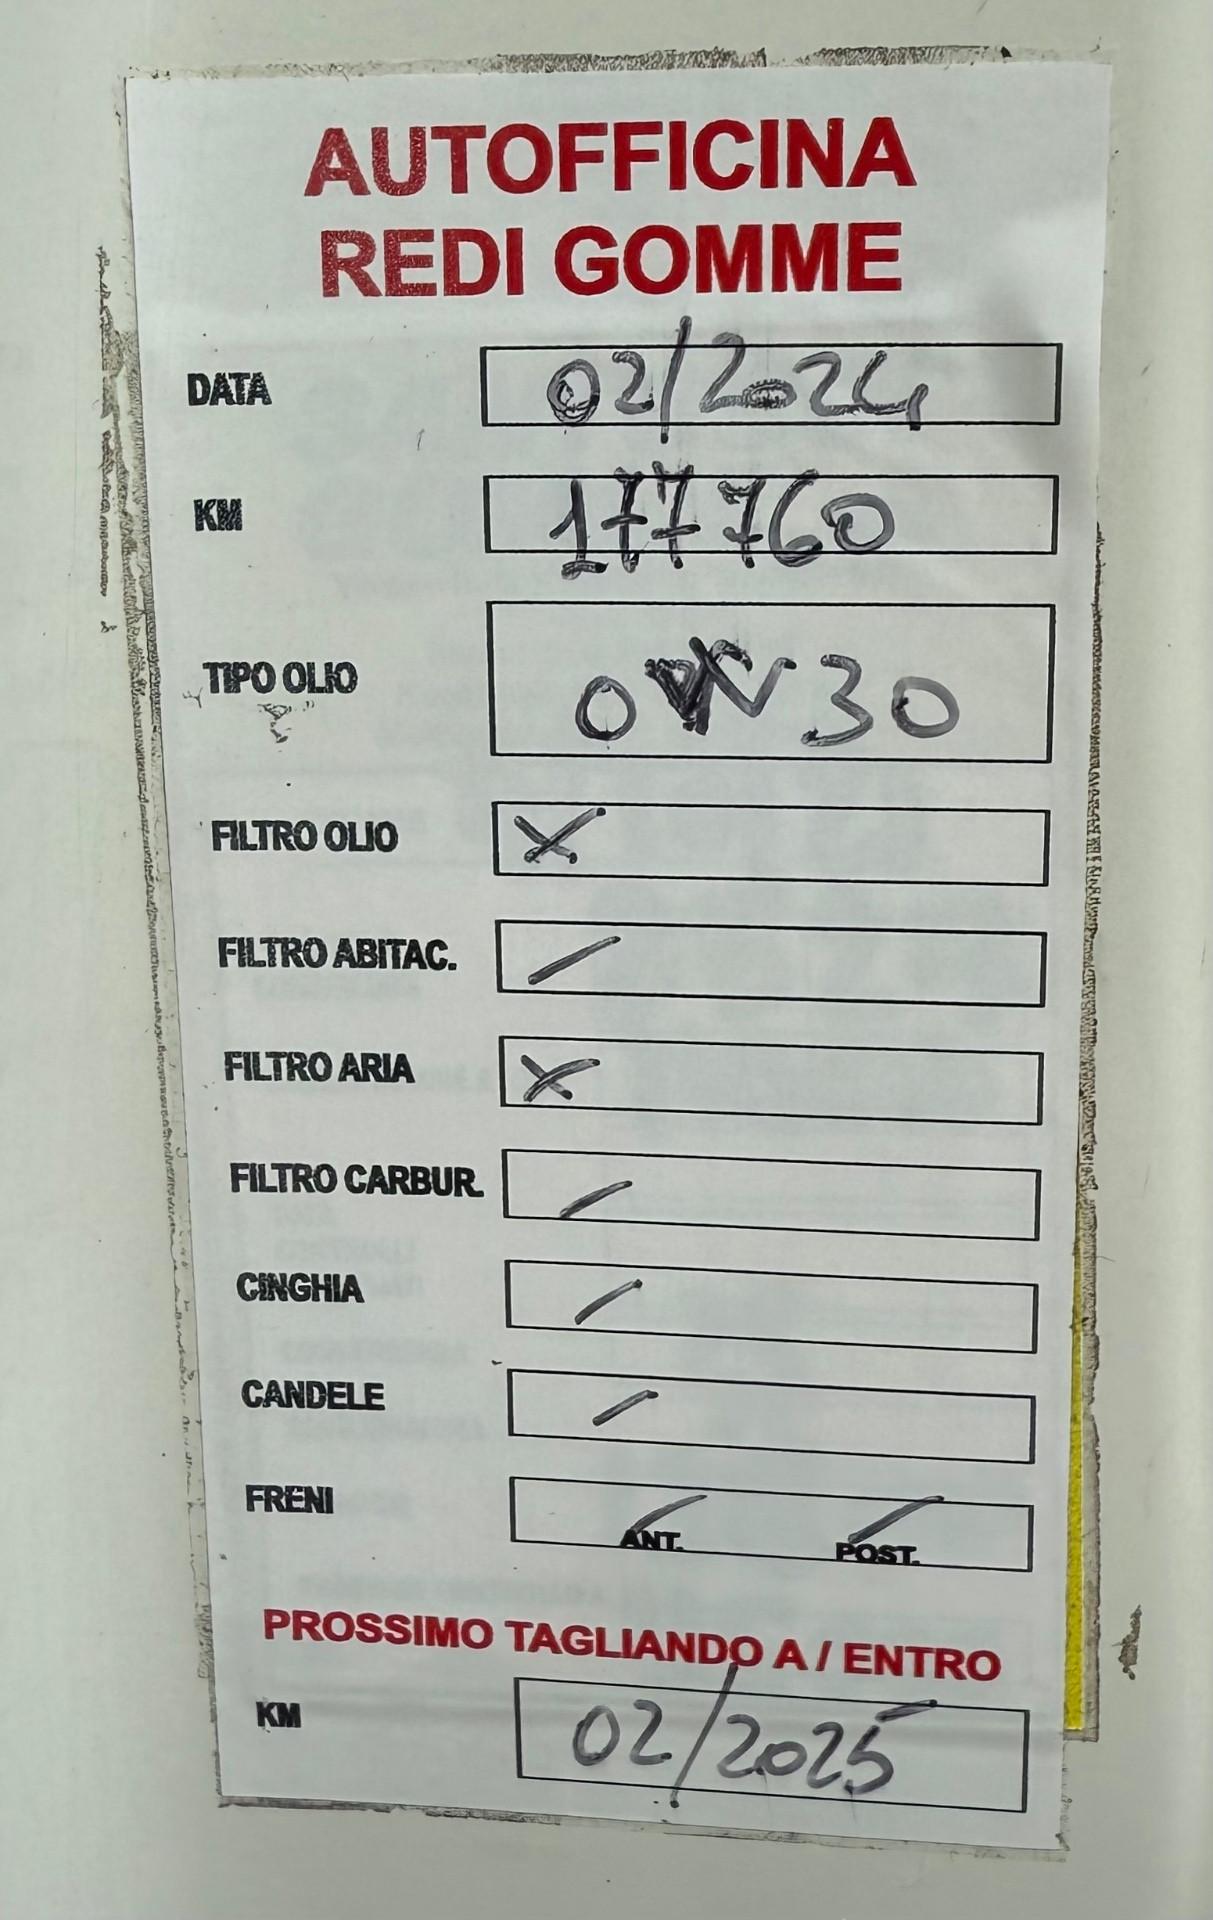 AUTOFFICINA
REDI GOMME
DATA 02/2024
KM 177760
TIPO OLIO 0W30
FILTRO OLIO X
FILTRO ABITAC. /
FILTRO ARIA X
FILTRO CARBUR. /
CINGHIA /
CANDELE /
FRENI / ANT. / POST.
PROSSIMO TAGLIANDO A / ENTRO
KM 02/2025